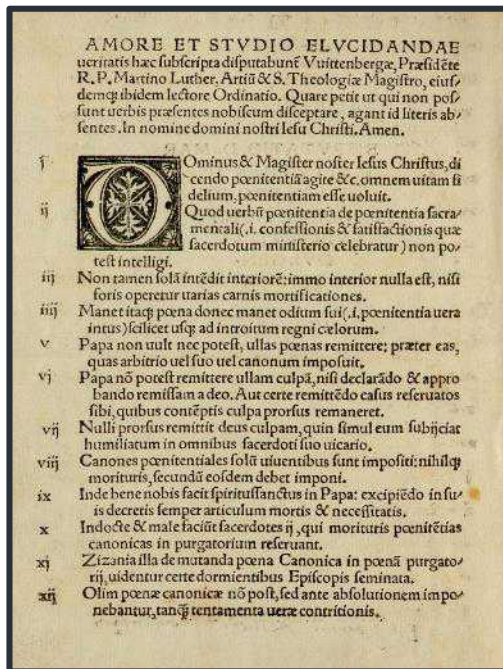 AMORE ET STVDIO ELVCIDANDAE
ueritatis hæc subscripta disputabunť Vuittenbergæ, Præsidēte
R. P. Martino Luther. Artiū & S. Theologiæ Magistro, eius/
demq; ibidem lectore Ordinatio. Quare petit ut qui non pos/
sunt uerbis præsentes nobiscum disceptare, agant id literis ab/
sentes. In nomine domini nostri Iesu Christi. Amen.
j DOminus & Magister noster Iesus Christus, di
cendo pœnitentiā agite &c. omnem uitam fi
delium, pœnitentiam esse uoluit.
ij Quod uerbū pœnitentia de pœnitentia sacra/
mentali (.i. confessionis & satisfactionis quæ
sacerdotum ministerio celebratur) non po/
test intelligi.
iij Non tamen solā intēdit interiorē: immo interior nulla est, nisi
foris operetur uarias carnis mortificationes.
iiij Manet itaq; pœna donec manet odium sui (.i. pœnitentia uera
intus) scilicet usq; ad introitum regni cælorum.
v Papa non uult nec potest, ullas pœnas remittere: præter eas,
quas arbitrio uel suo uel canonum imposuit.
vj Papa nō potest remittere ullam culpā, nisi declarādo & appro
bando remissam a deo. Aut certe remittēdo casus reseruatos
sibi, quibus contēptis culpa prorsus remaneret.
vij Nulli prorsus remittit deus culpam, quin simul eum subijciat
humiliatum in omnibus sacerdoti suo uicario.
viij Canones pœnitentiales solū uiuentibus sunt impositi: nihilq;
morituris, secundū eosdem debet imponi.
ix Inde bene nobis facit spiritussanctus in Papa: excipiēdo in su/
is decretis semper articulum mortis & necessitatis.
x Indocte & male faciūt sacerdotes ij, qui morituris pœnitētias
canonicas in purgatorium reseruant.
xj Zizania illa de mutanda pœna Canonica in pœnā purgato/
rij, uidentur certe dormientibus Episcopis seminata.
xij Olim pœnæ canonicæ nō post, sed ante absolutionem impo/
nebantur, tanq̄ tentamenta ueræ contritionis.